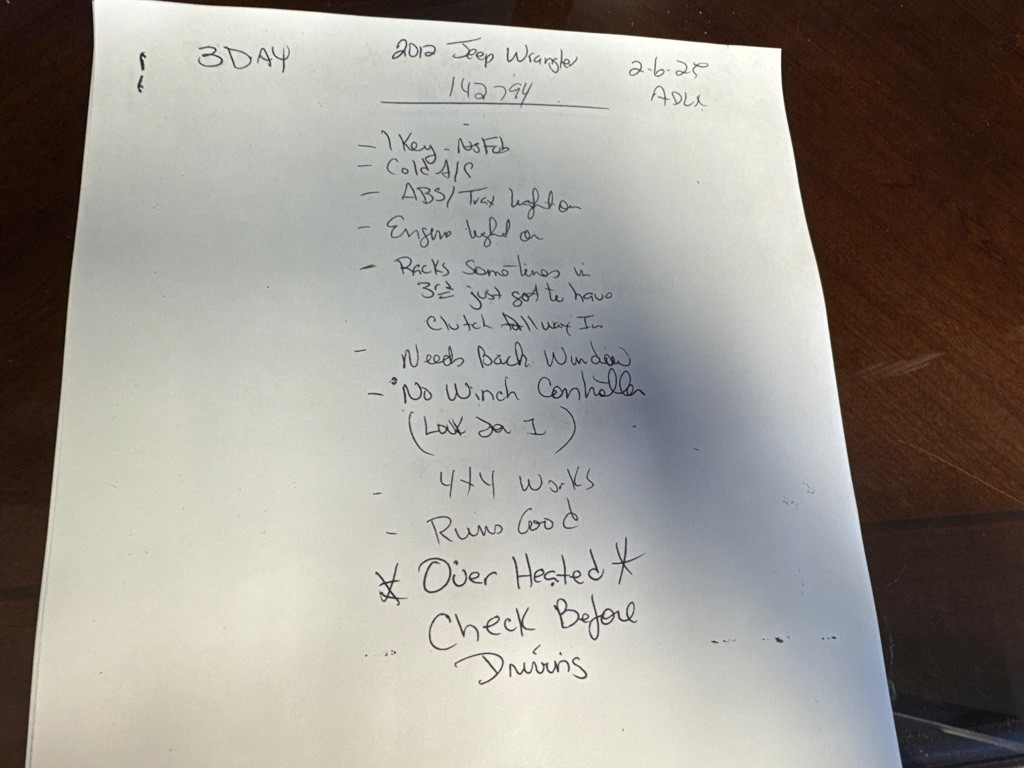 3 DAY
2012 Jeep Wrangler
2-6-25
142794
- 1 Key - No Fob
- Cold A/C
- ABS/Trax light on
- Engine light on
- Racks Sometimes in
3rd just got to have
Clutch all way In
- Needs Back Window
- No Winch Controller
(Look For 1)
- 4x4 Works
- Runs Good
* Over Heated *
Check Before
Driving